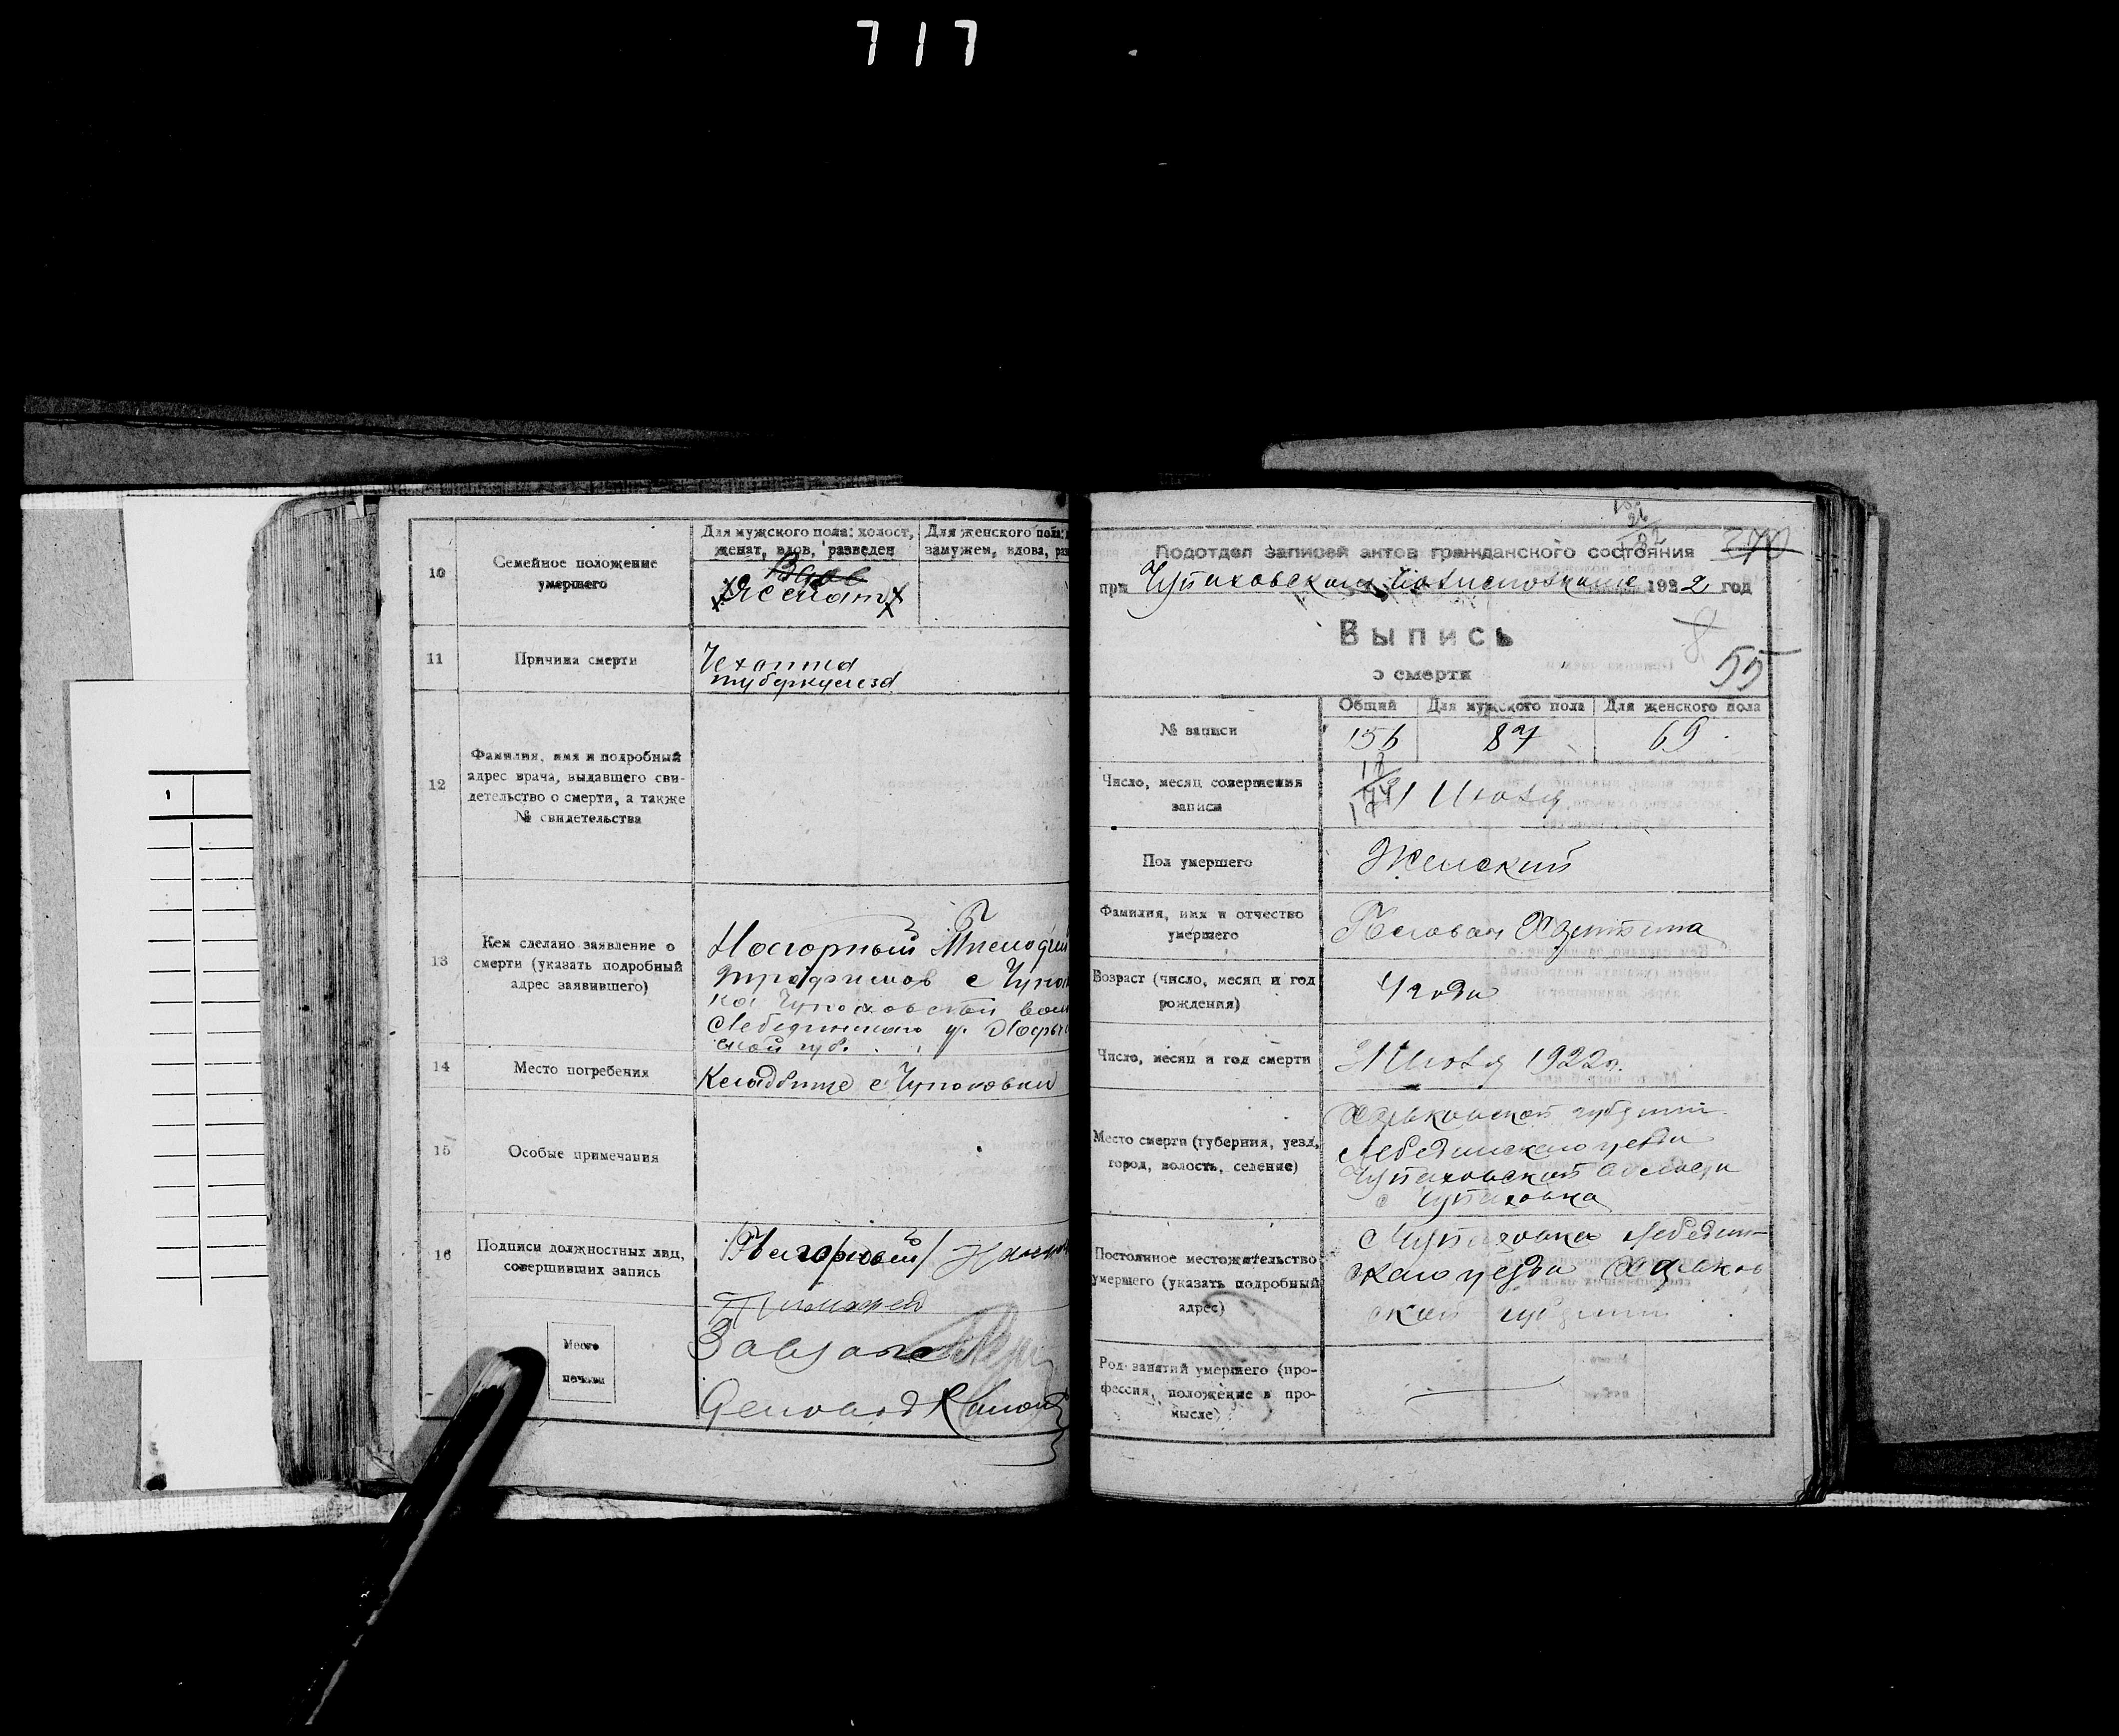 717
10
Семейное положение
умершего
Для мужского пола: холост,
женат, вдов, разведен
Для женского пола:
замужем, вдова, раз
Вдов
Женат
11
Причина смерти
Чахотка
туберкулеза
12
Фамилия, имя и подробный
адрес врача, выдавшего сви-
детельство о смерти, а также
№ свидетельства
13
Кем сделано заявление о
смерти (указать подробный
адрес заявившего)
Нагорный
Трофимов с Чупа
ка Чупаховской вол
Лебединского у. Харьк
ской губ.
14
Место погребения
Кладбище с Чупаховки
15
Особые примечания
16
Подписи должностных лиц,
совершивших запись
Место
печати
Завзагс
370
Подотдел записей актов гражданского состояния
при Чупаховском Волисполкоме 1922 год
Выпись
о смерти
8
55
№ записи
Общий
Для мужского пола
Для женского пола
156
87
69
Число, месяц совершения
записи
Июля
Пол умершего
Женский
Фамилия, имя и отчество
умершего
Возраст (число, месяц и год
рождения)
4 года
Число, месяц и год смерти
Июля 1922г.
Место смерти (губерния, уезд,
город, волость, селение)
Харьковской губернии
Лебединского уезда
Чупаховской волости
с Чупаховка
Постоянное местожительство
умершего (указать подробный
адрес)
с Чупаховка Лебедин-
скаго уезда Харьков
ской губернии
Род занятий умершего (про-
фессия, положение в про-
мысле)
1